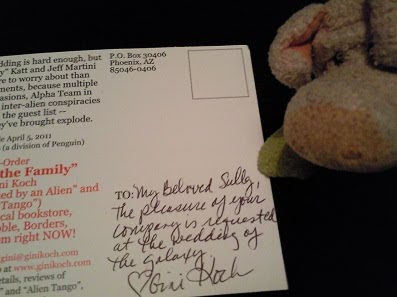 dding is hard enough, but
y" Katt and Jeff Martini
re to worry about than
ments, because multiple
asions, Alpha Team in
inter-alien conspiracies
the guest list --
ey've brought explode.
le April 5, 2011
(a division of Penguin)
-Order
the Family"
ni Koch
ed by an Alien" and
Tango")
cal bookstore,
ble, Borders,
om right NOW!
gini@ginikoch.com
at www.ginikoch.com
details, reviews of
" and "Alien Tango",
P.O. Box 30406
Phoenix, AZ
85046-0406
TO: My Beloved Sully,
The pleasure of your
company is requested
at the wedding of
the galaxy.
♡Gini Koch